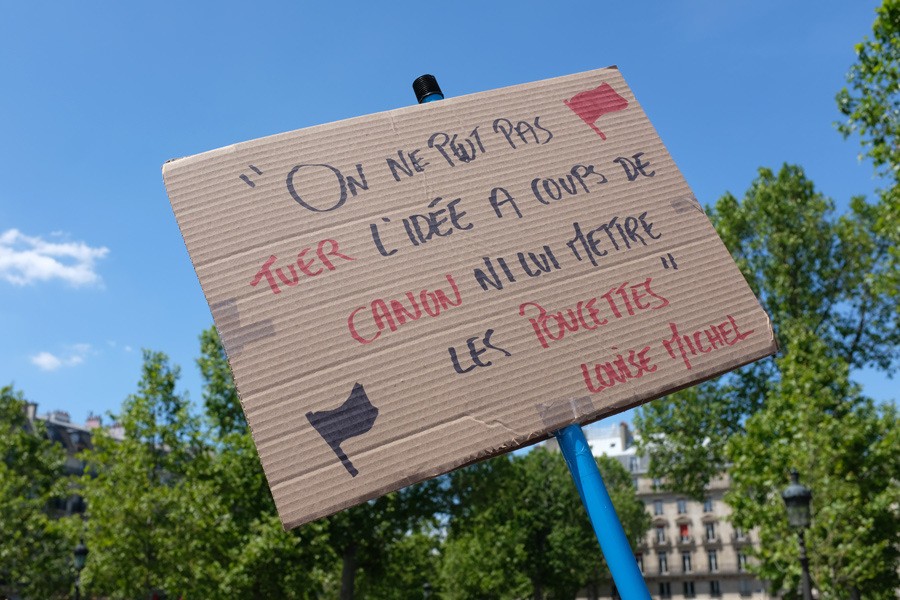 "ON NE PEUT PAS
TUER L'IDÉE A COUPS DE
CANON NI LUI METTRE
LES POUCETTES"
LOUISE MICHEL